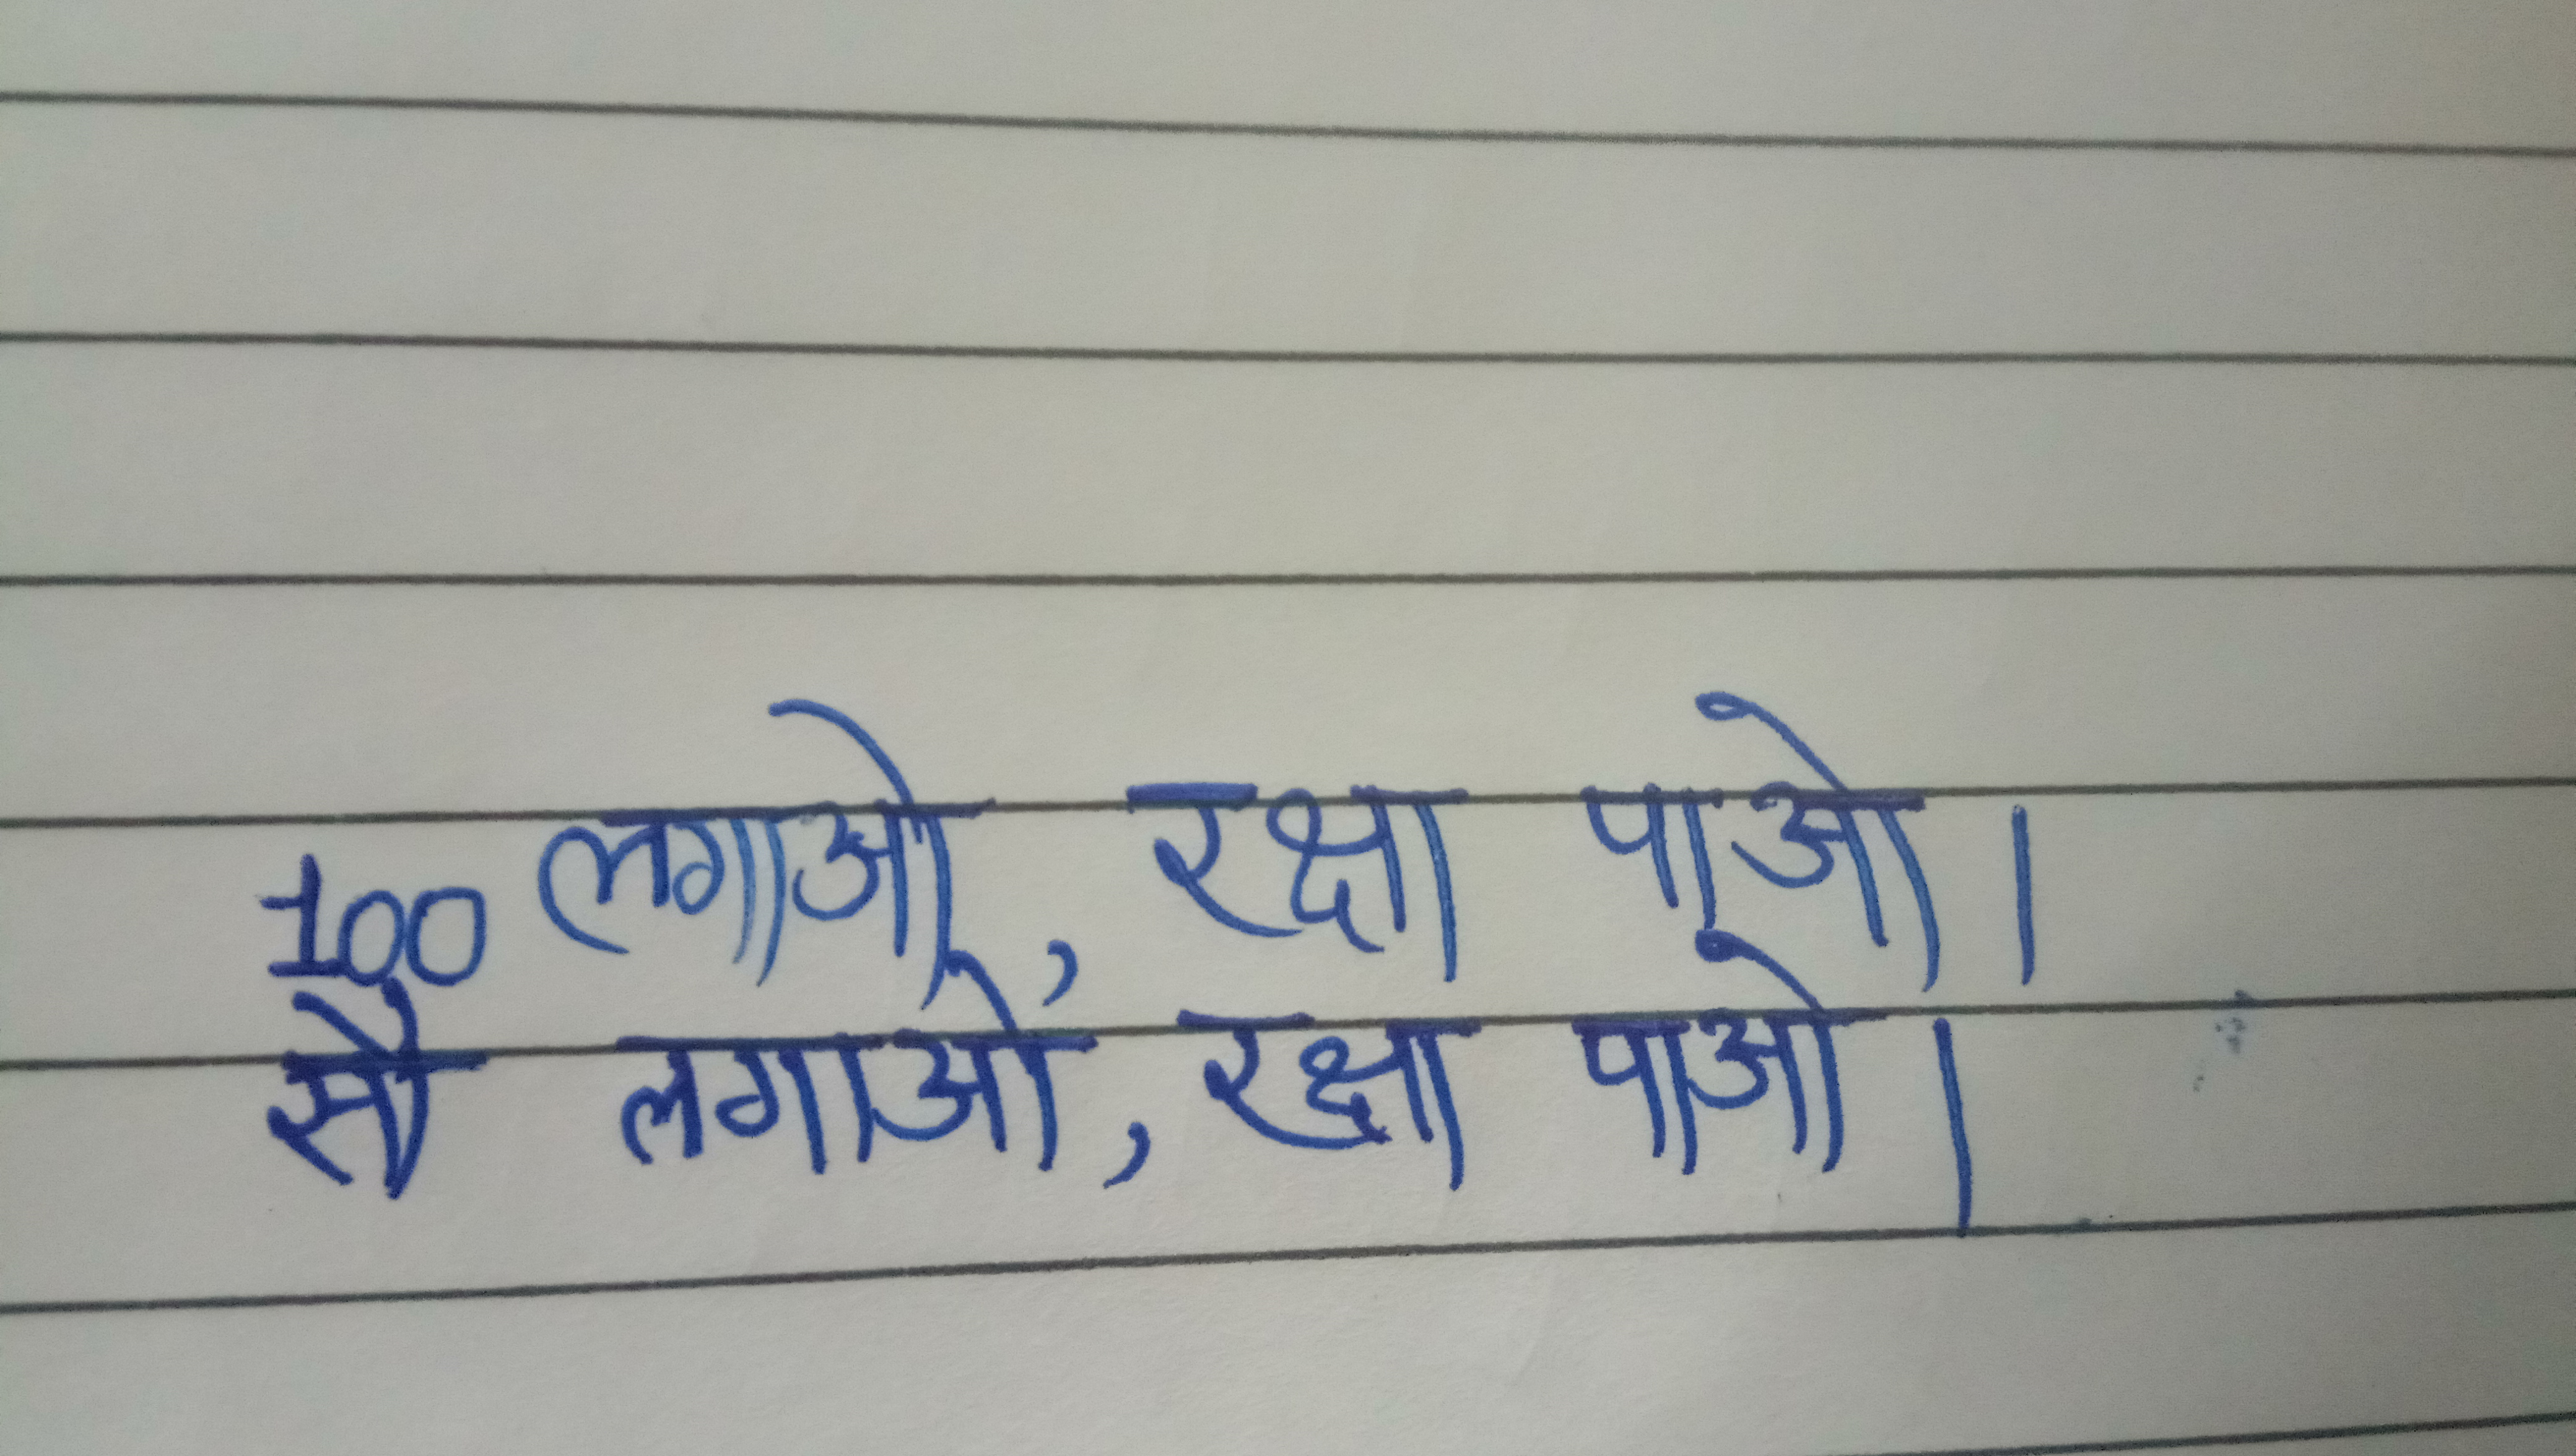 100 लगाओ, रक्षा पाओ।
सौ लगाओ, रक्षा पाओ।